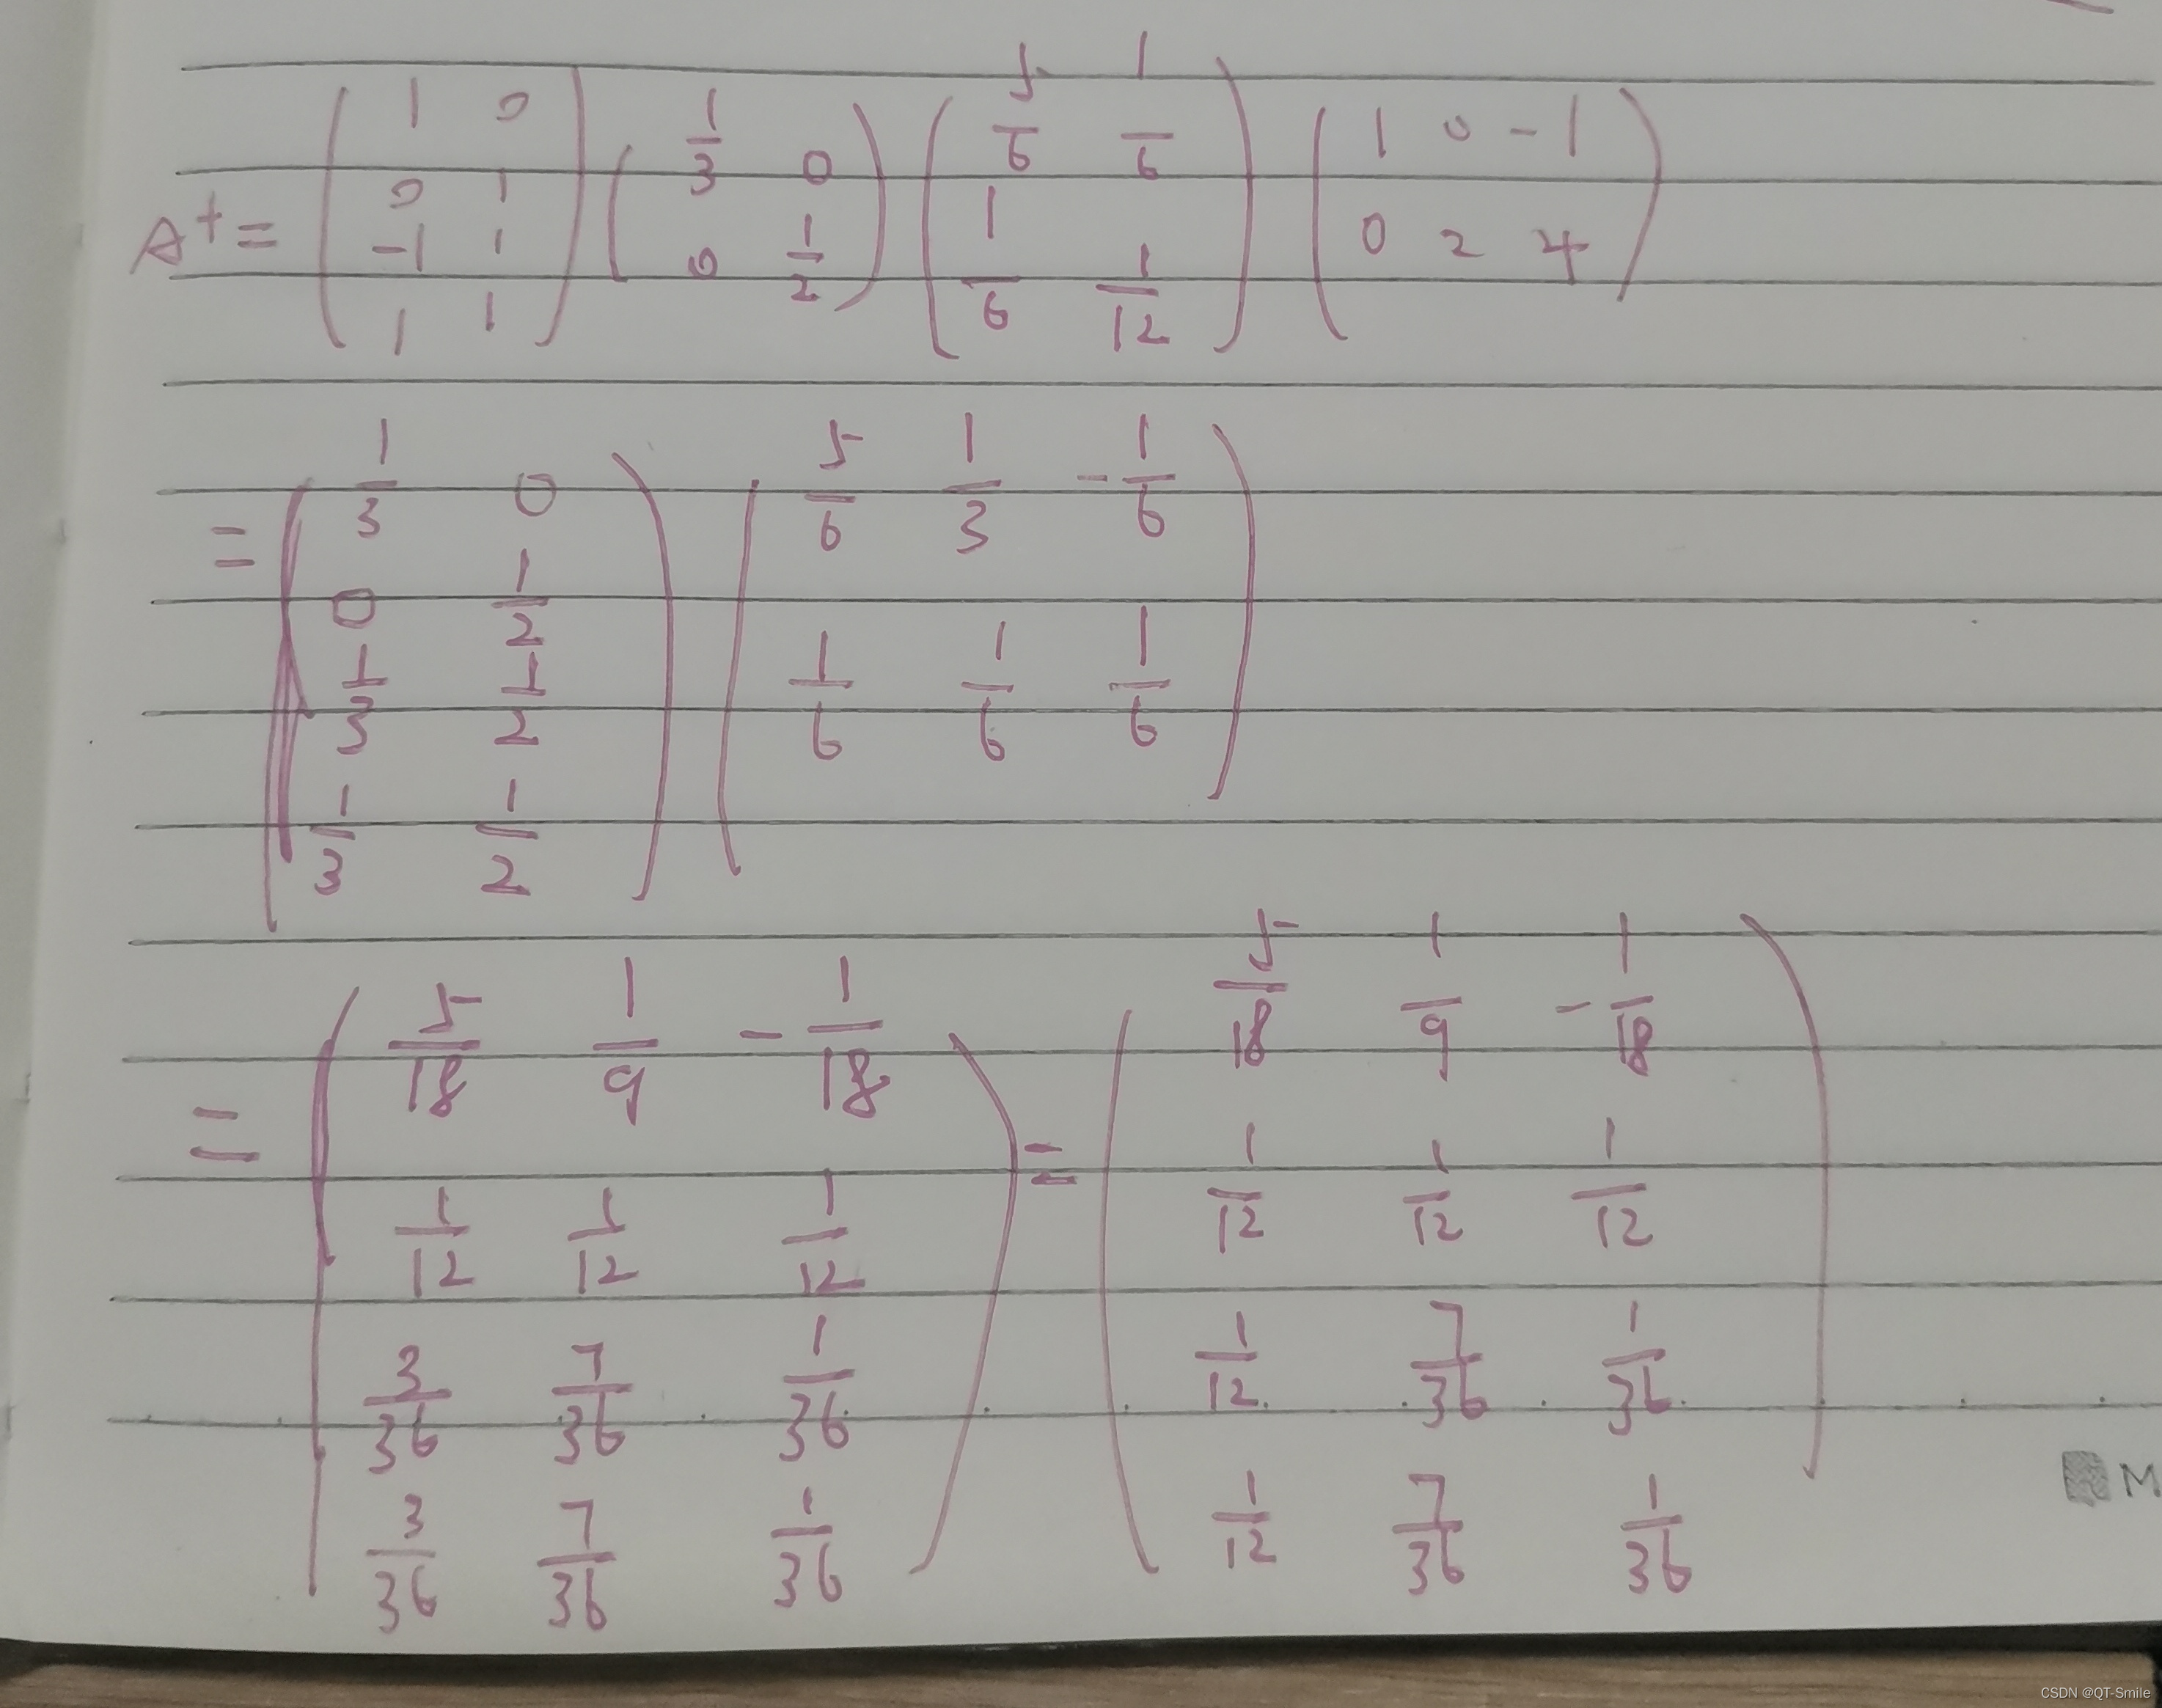 A⁺ = ( 1 0 ; 0 1 ; -1 1 ; 1 1 ) ( 1/3 0 ; 0 1/2 ) ( 5/6 1/6 ; 1/6 1/12 ) ( 1 0 -1 ; 0 2 4 )
= ( 1/3 0 ; 0 1/2 ; 1/3 1/2 ; 1/3 1/2 ) ( 5/6 1/3 -1/6 ; 1/6 1/6 1/6 )
= ( 5/18 1/9 -1/18 ; 1/12 1/12 1/12 ; 3/36 7/36 1/36 ; 3/36 7/36 1/36 ) = ( 5/18 1/9 -1/18 ; 1/12 1/12 1/12 ; 1/12 7/36 1/36 ; 1/12 7/36 1/36 )
M
CSDN @QT-Smile